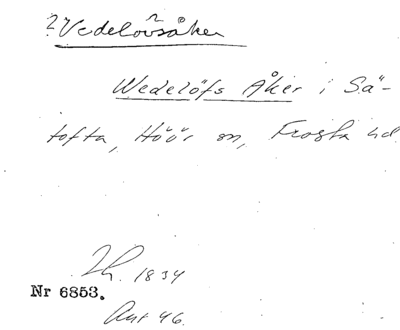 ? Vedelövsåker
Wedelöfs Åker i Sä-
tofta, Höör sn, Frosta hd
Lh. 1834
Nr 6853.
Avr 46